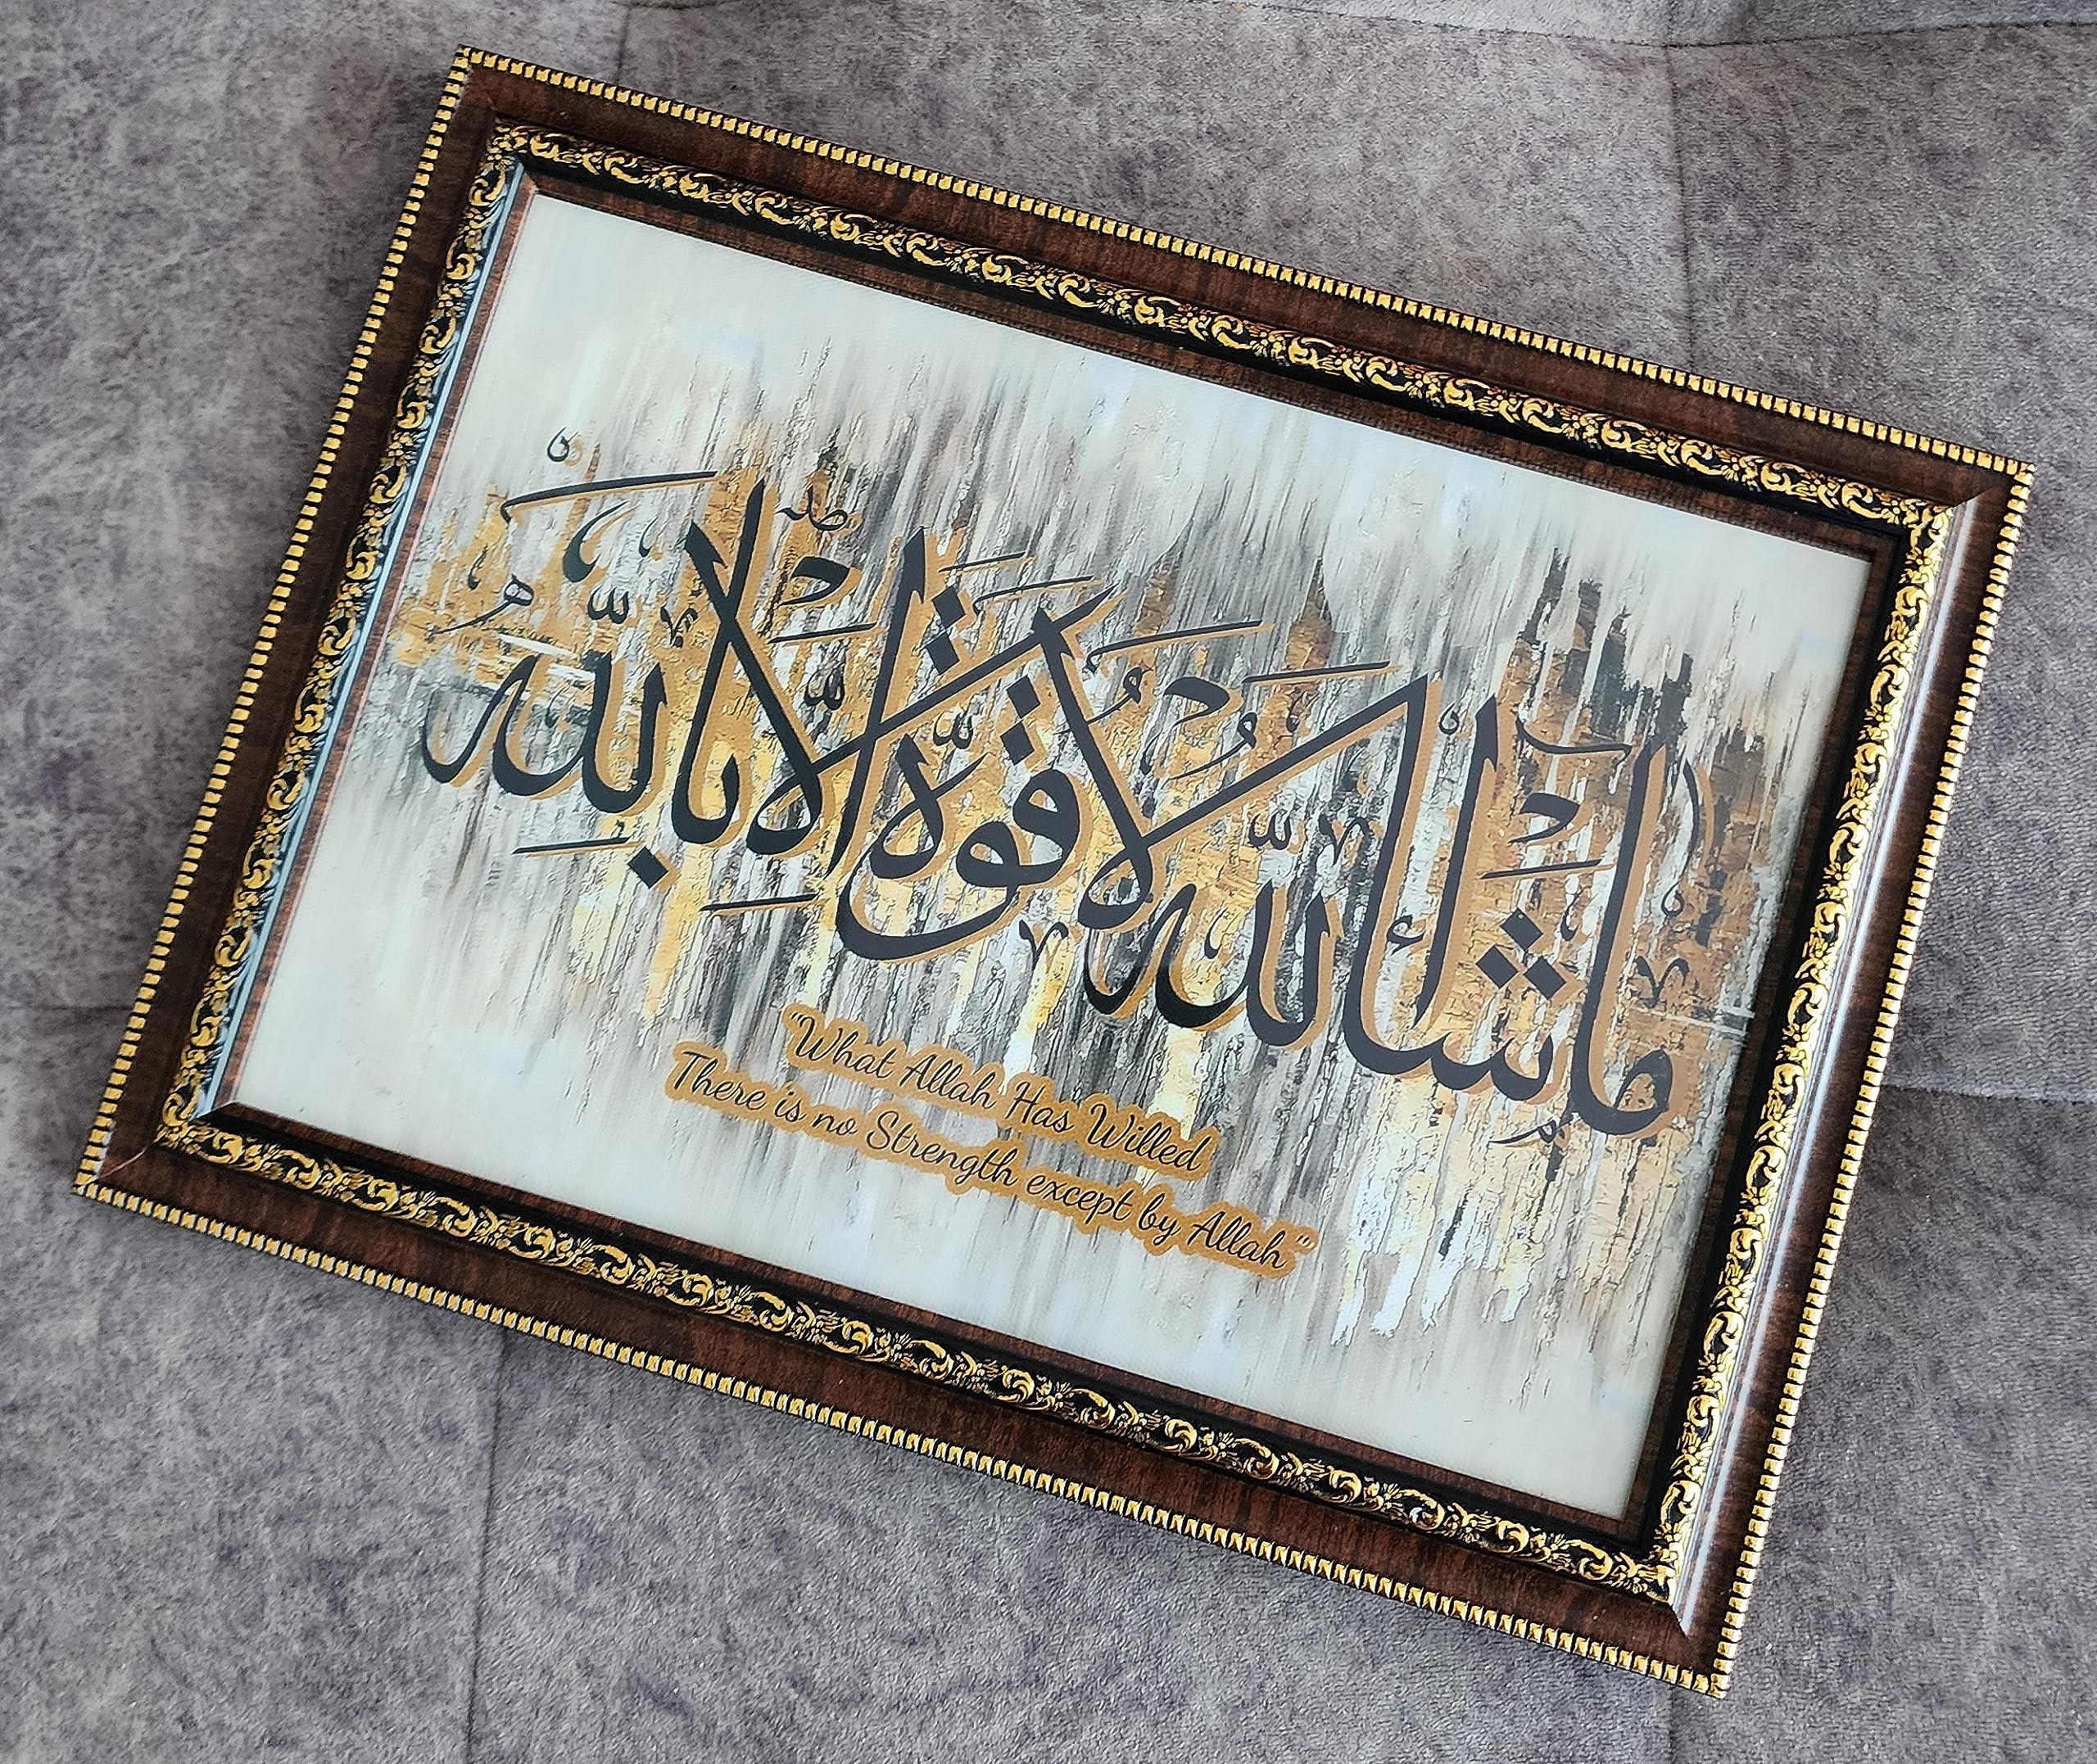 ما شاء الله لا قوة إلا بالله
"What Allah Has Willed
There is no Strength except by Allah"